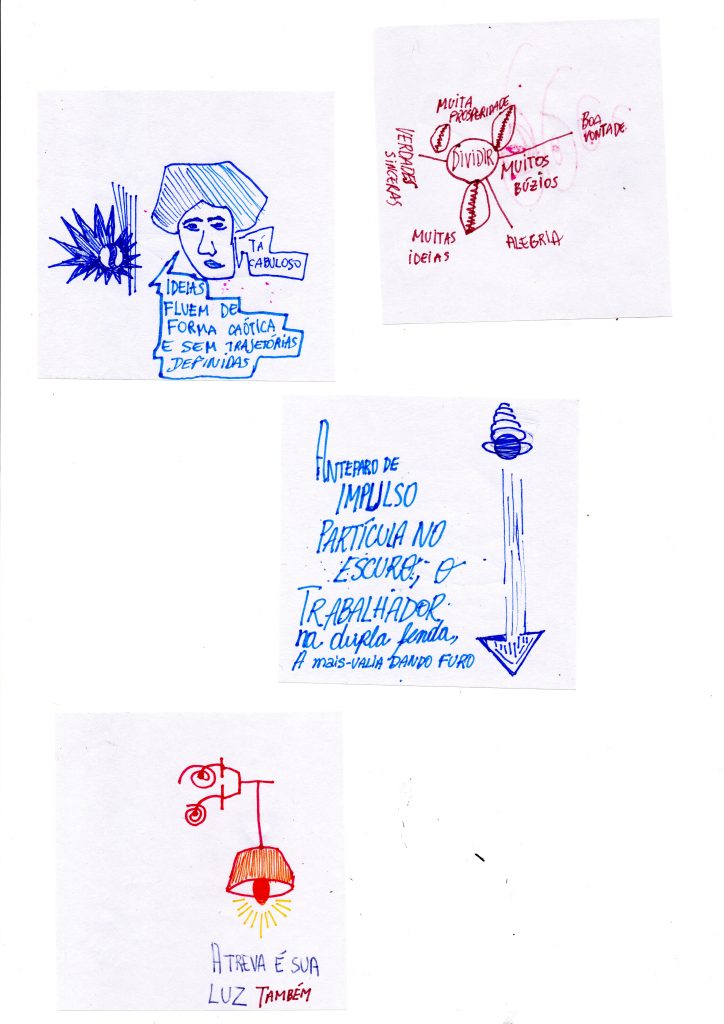 MUITA
PROSPERIDADE
BOA
VONTADE
VERDADES
SINCERAS
DIVIDIR
MUITOS
BÚZIOS
MUITAS
IDEIAS
ALEGRIA
TÁ
CABULOSO
IDEIAS
FLUEM DE
FORMA CAÓTICA
E SEM TRAJETÓRIAS
DEFINIDAS
ANTEPARO DE
IMPULSO
PARTÍCULA NO
ESCURO; O
TRABALHADOR
na dupla fenda,
A mais-VALIA DANDO FURO
A TREVA É SUA
LUZ TAMBÉM